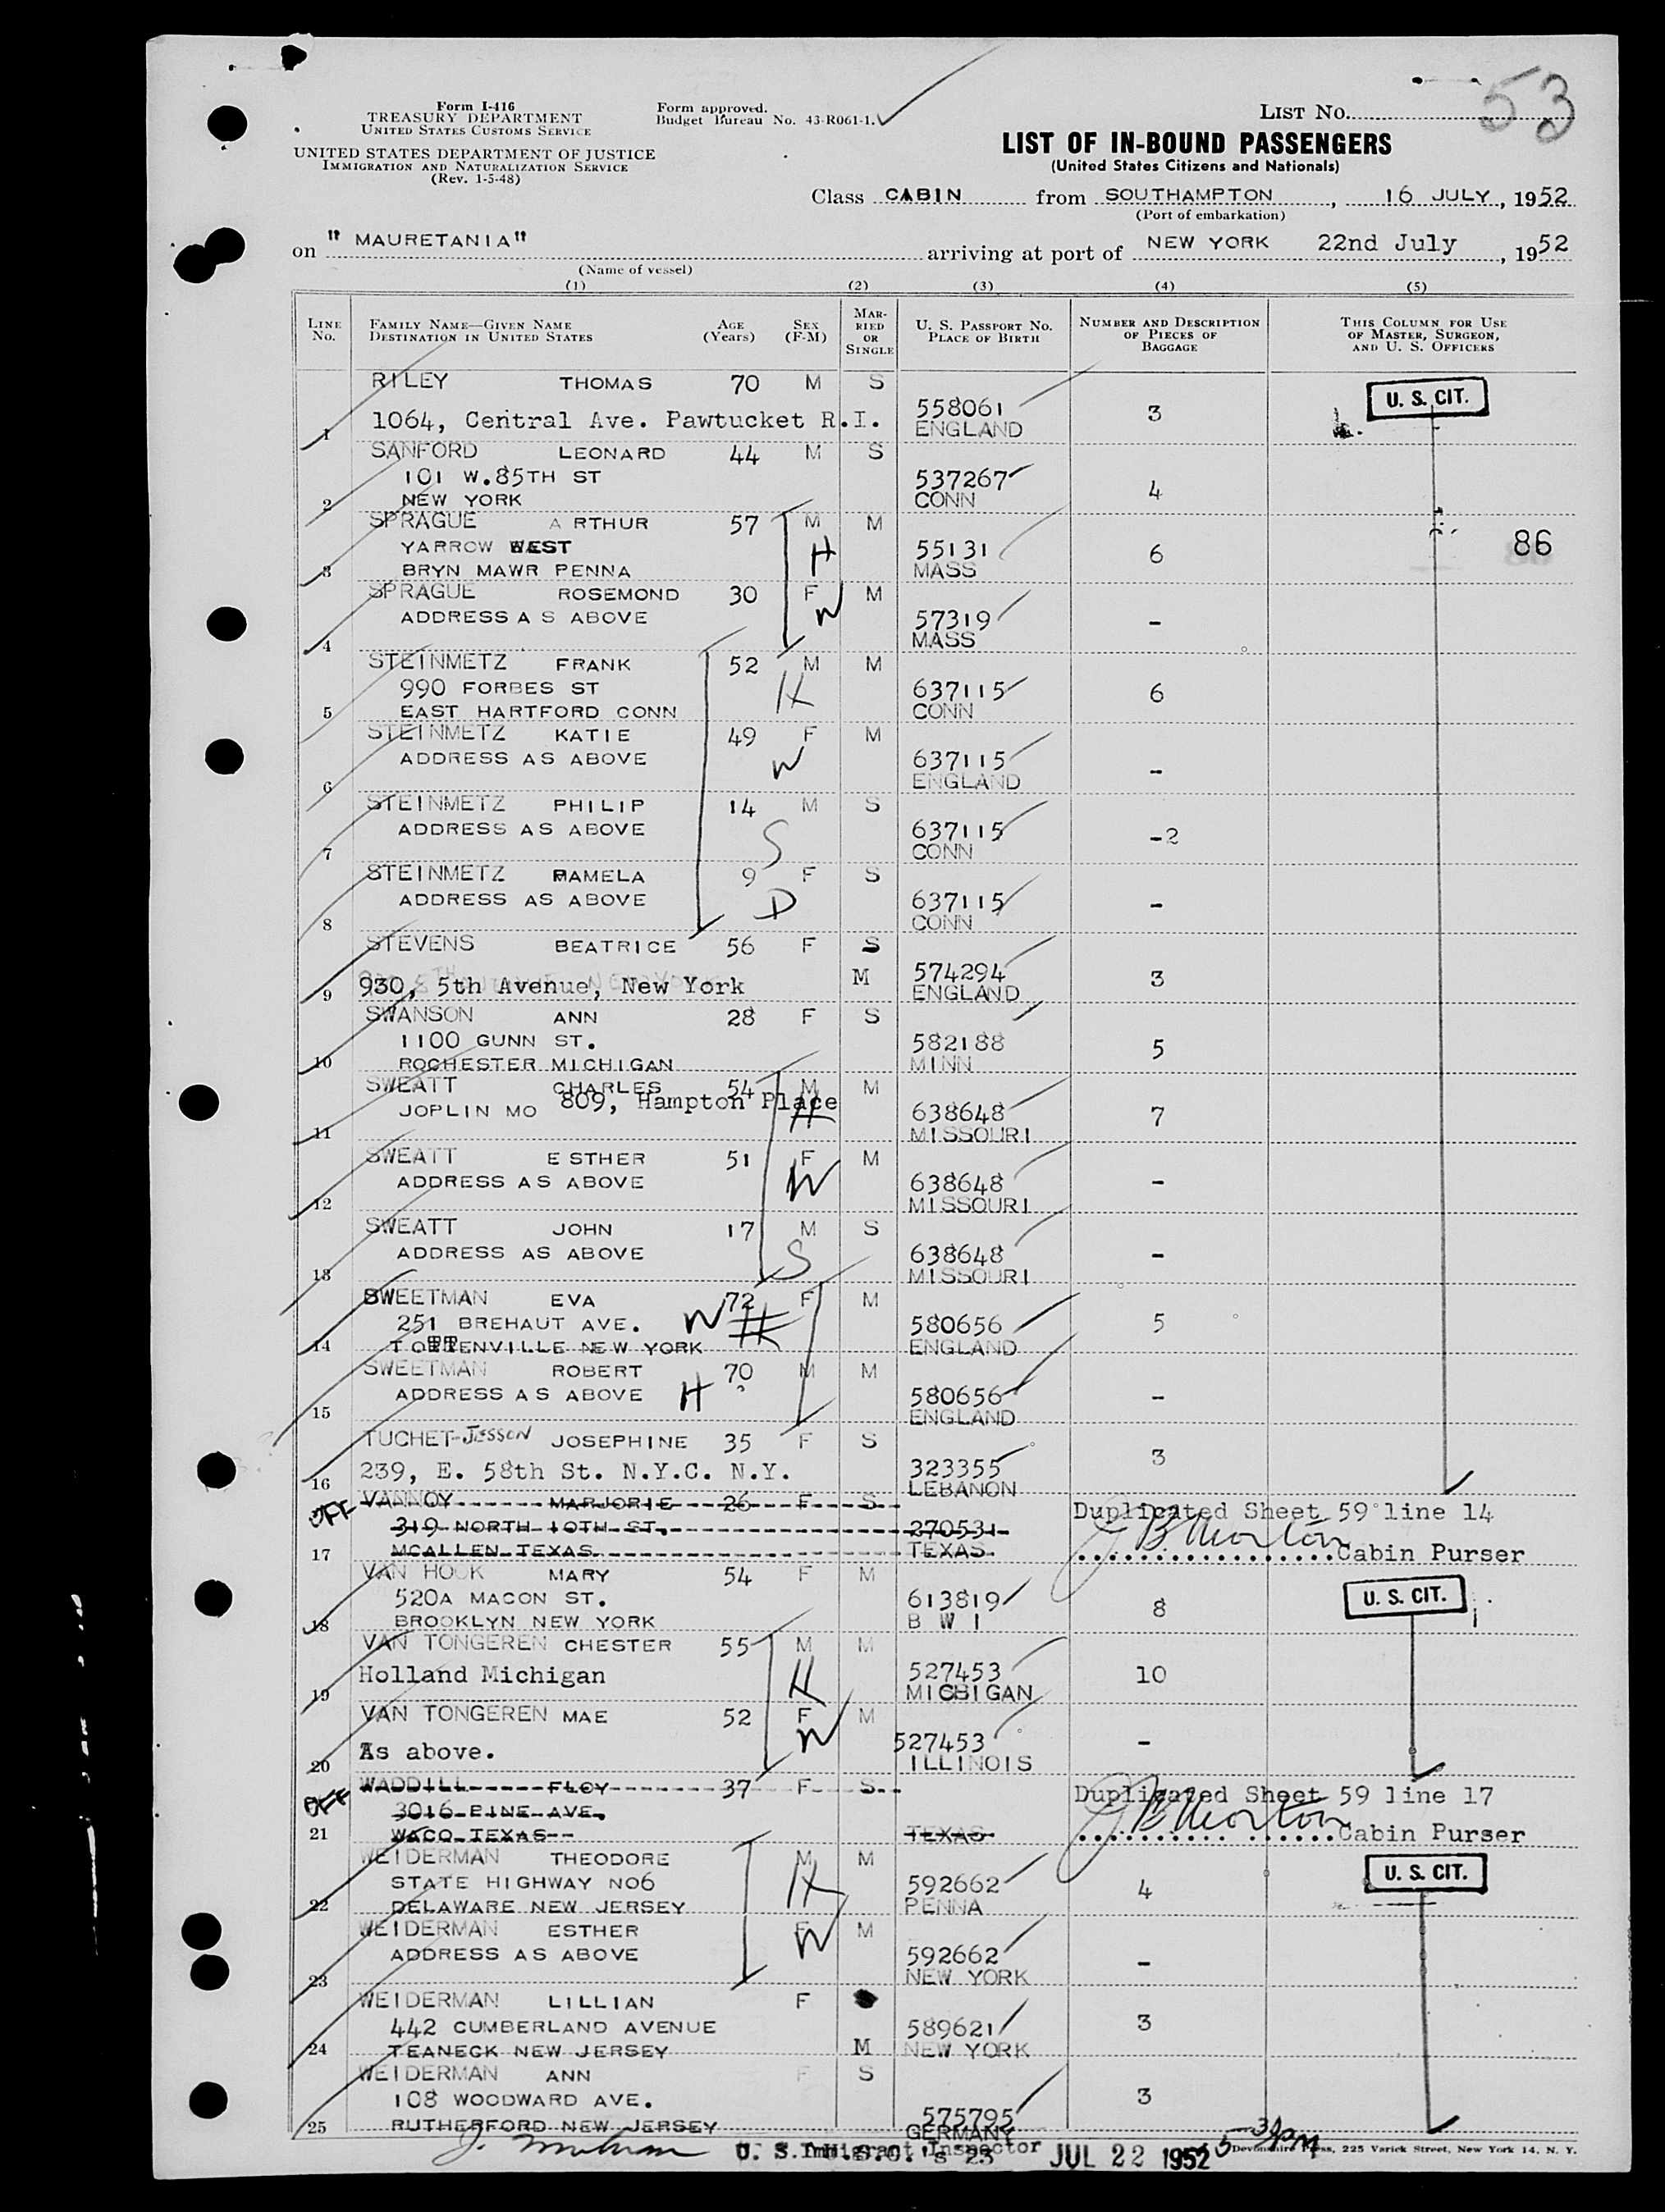 53
Form I-416
TREASURY DEPARTMENT
UNITED STATES CUSTOMS SERVICE
UNITED STATES DEPARTMENT OF JUSTICE
IMMIGRATION AND NATURALIZATION SERVICE
(Rev. 1-5-48)
Form approved.
Budget Bureau No. 43-R061-1.
LIST NO.
LIST OF IN-BOUND PASSENGERS
(United States Citizens and Nationals)
Class CABIN from SOUTHAMPTON, 16 JULY, 1952
(Port of embarkation)
on " MAURETANIA" arriving at port of NEW YORK 22nd July, 1952
(Name of vessel)
(1) (2) (3) (4) (5)
LINE NO. FAMILY NAME—GIVEN NAME DESTINATION IN UNITED STATES AGE (Years) SEX (F-M) MARRIED OR SINGLE U. S. PASSPORT NO. PLACE OF BIRTH NUMBER AND DESCRIPTION OF PIECES OF BAGGAGE THIS COLUMN FOR USE OF MASTER, SURGEON, AND U. S. OFFICERS
RILEY THOMAS 70 M S
558061 3 U. S. CIT.
1 1064, Central Ave. Pawtucket R.I. ENGLAND
SANFORD LEONARD 44 M S
101 W.85TH ST 537267 4
2 NEW YORK CONN
SPRAGUE ARTHUR 57 M M
YARROW WEST H 55131 6 86
3 BRYN MAWR PENNA MASS
SPRAGUE ROSEMOND 30 F M
ADDRESS A S ABOVE W 57319 -
4 MASS
STEINMETZ FRANK 52 M M
990 FORBES ST H 637115 6
5 EAST HARTFORD CONN CONN
STEINMETZ KATIE 49 F M
ADDRESS AS ABOVE W 637115 -
6 ENGLAND
STEINMETZ PHILIP 14 M S
ADDRESS AS ABOVE S 637115 -2
7 CONN
STEINMETZ PAMELA 9 F S
ADDRESS AS ABOVE D 637115 -
8 CONN
STEVENS BEATRICE 56 F S
M 574294 3
9 930, 5th Avenue, New York ENGLAND
SWANSON ANN 28 F S
1100 GUNN ST. 582188 5
10 ROCHESTER MICHIGAN MINN
SWEATT CHARLES 54 M M
JOPLIN MO 809, Hampton Place H 638648 7
11 MISSOURI
SWEATT E STHER 51 F M
ADDRESS AS ABOVE W 638648 -
12 MISSOURI
SWEATT JOHN 17 M S
ADDRESS AS ABOVE S 638648 -
13 MISSOURI
SWEETMAN EVA 72 F M
251 BREHAUT AVE. W H 580656 5
14 TOTTENVILLE NEW YORK ENGLAND
SWEETMAN ROBERT 70 M M
ADDRESS AS ABOVE H 580656 -
15 ENGLAND
TUCHET-JESSON JOSEPHINE 35 F S
239, E. 58th St. N.Y.C. N.Y. 323355 3
16 LEBANON
OFF VANNOY MARJORIE 26 F S Duplicated Sheet 59 line 14
319 NORTH 10TH ST. 270531 J B Morton
17 MCALLEN TEXAS TEXAS Cabin Purser
VAN HOOK MARY 54 F M
520A MACON ST. 613819 8 U. S. CIT.
18 BROOKLYN NEW YORK B W I
VAN TONGEREN CHESTER 55 M M
Holland Michigan H 527453 10
19 MICHIGAN
VAN TONGEREN MAE 52 F M
As above. W 527453 -
20 ILLINOIS
OFF WADDILL FLOY 37 F S Duplicated Sheet 59 line 17
3016 PINE AVE. J B Morton
21 WACO TEXAS TEXAS Cabin Purser
WEIDERMAN THEODORE M M
STATE HIGHWAY NO6 H 592662 4 U. S. CIT.
22 DELAWARE NEW JERSEY PENNA
WEIDERMAN ESTHER F M
ADDRESS AS ABOVE W 592662 -
23 NEW YORK
WEIDERMAN LILLIAN F
442 CUMBERLAND AVENUE 589621 3
24 TEANECK NEW JERSEY M NEW YORK
WEIDERMAN ANN F S
108 WOODWARD AVE. 575795 3
25 RUTHERFORD NEW JERSEY GERMANY
U. S. Immigrant Inspector JUL 22 1952
U.S.C.'s 23
Devonshire Press, 225 Varick Street, New York 14, N. Y.